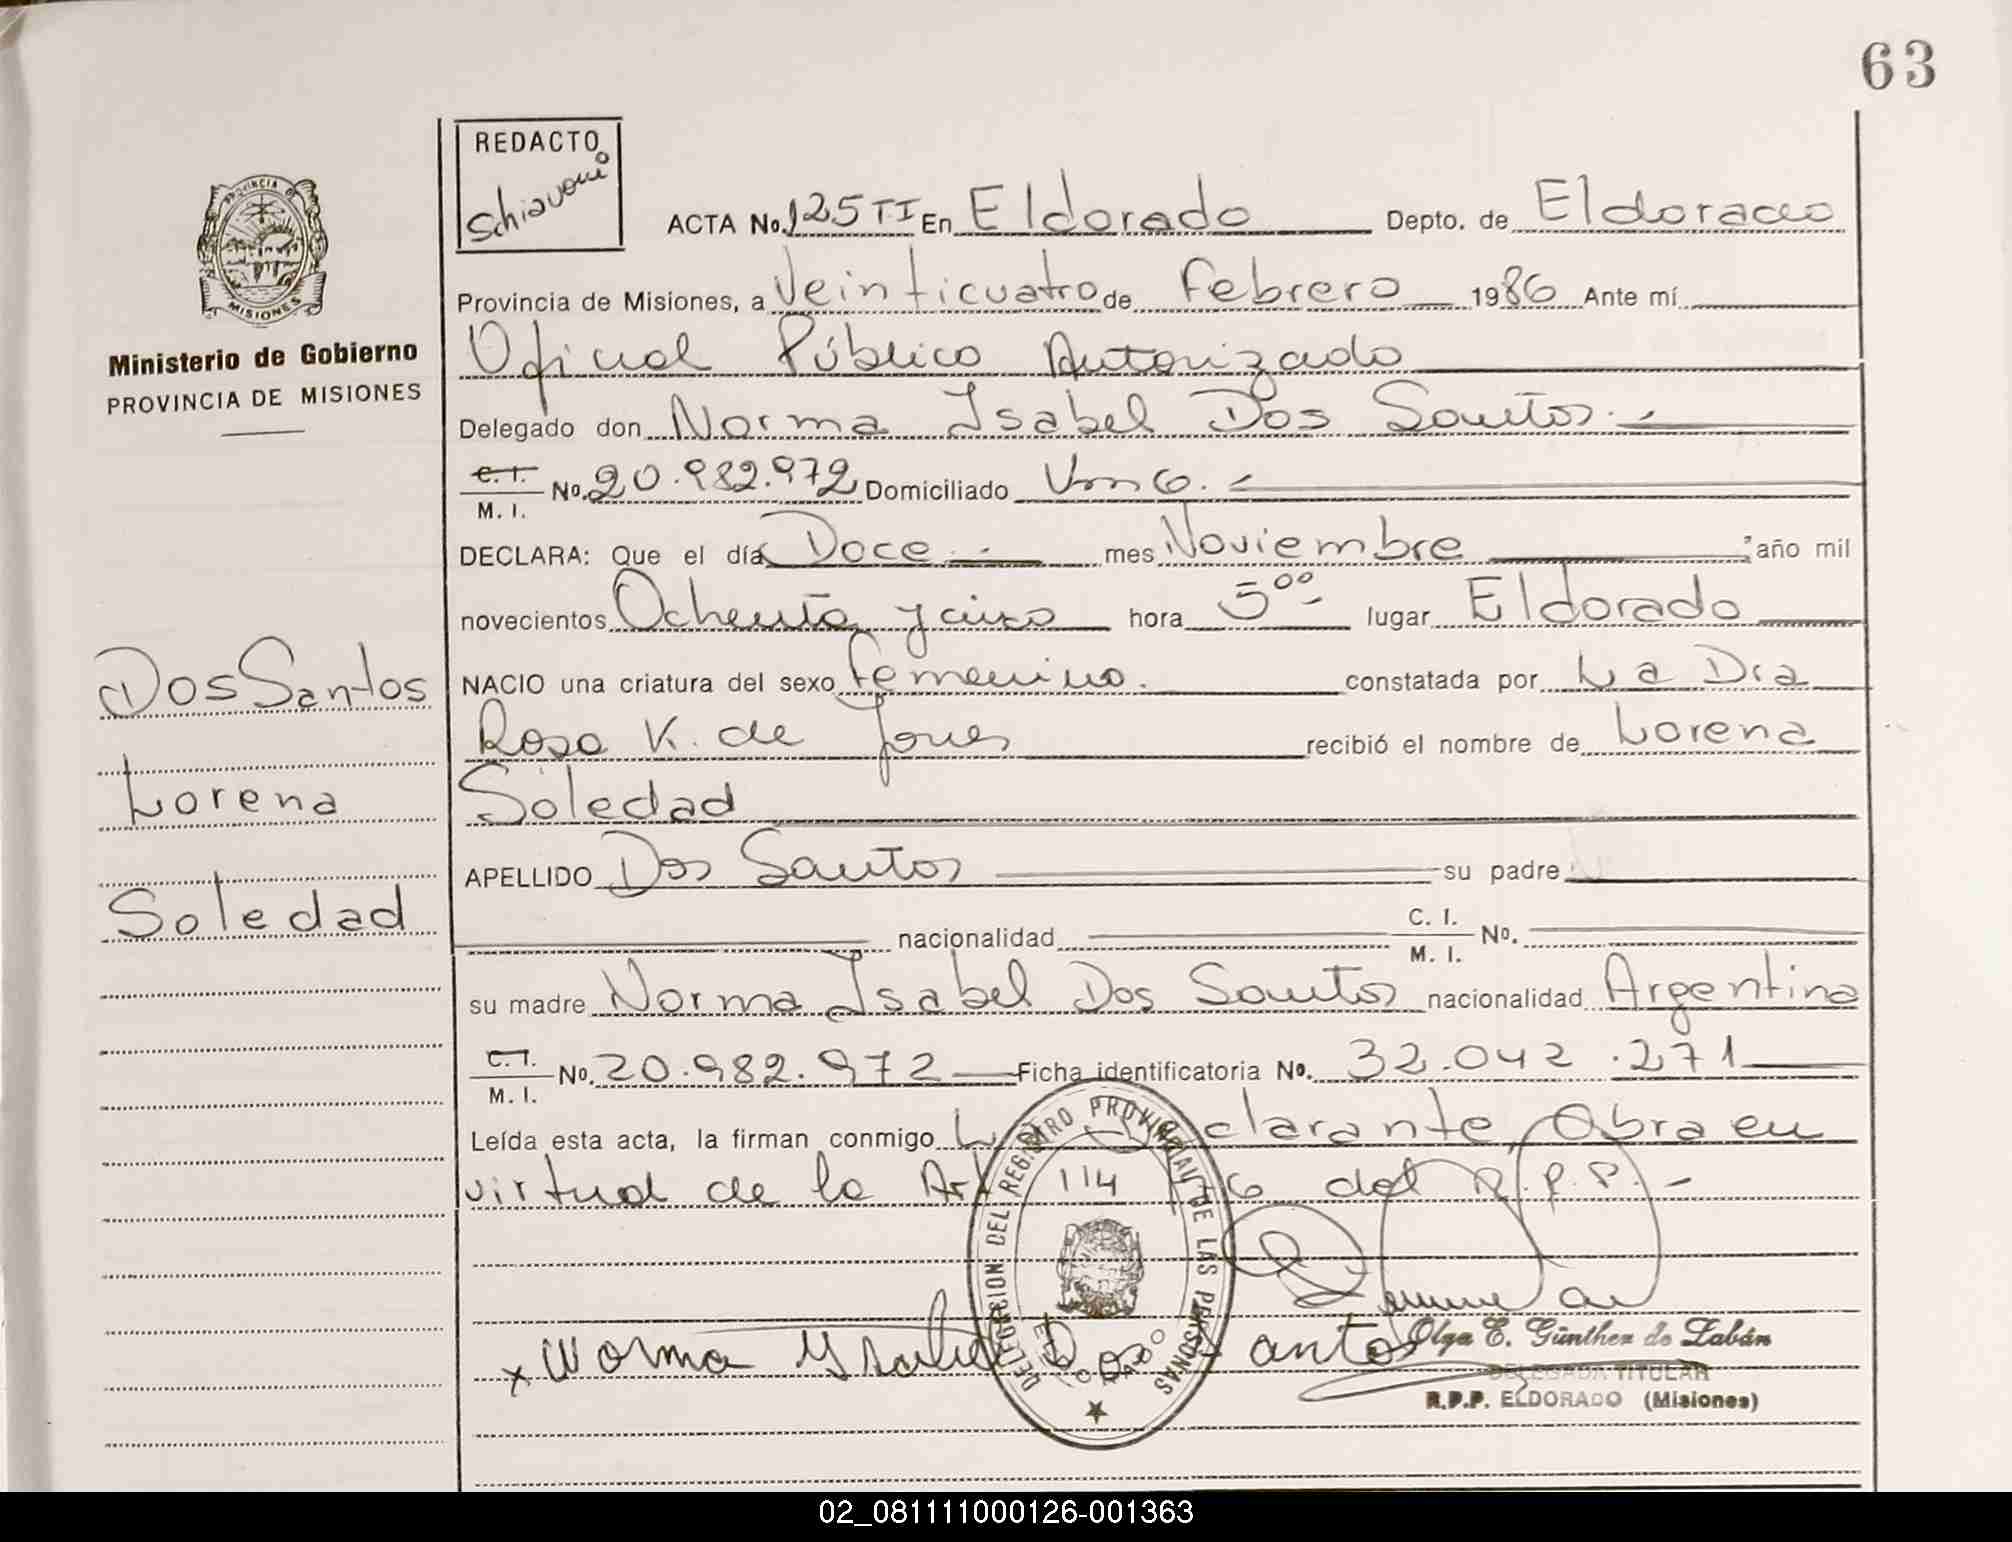 63
REDACTO
Schiavoni
PROVINCIA DE
MISIONES
Ministerio de Gobierno
PROVINCIA DE MISIONES
ACTA No. 125 TI En Eldorado Depto. de Eldorado
Provincia de Misiones, a Veinticuatro de Febrero 1986 Ante mí
Oficial Público Autorizado
Delegado don Norma Isabel Dos Santos.-
C.I. M.I. No. 20.982.972 Domiciliado
DECLARA: Que el día Doce.- mes Noviembre año mil
novecientos Ochenta y cinco hora 5°° lugar Eldorado
Dos Santos
NACIO una criatura del sexo femenino. constatada por La Dra
Rosa K. de Jones recibió el nombre de Lorena
Lorena
Soledad
APELLIDO Dos Santos su padre
Soledad
nacionalidad C. I. M. I. No.
su madre Norma Isabel Dos Santos nacionalidad Argentina
C.I. M. I. No. 20.982.972 Ficha identificatoria No. 32.042.271
Leída esta acta, la firman conmigo clarante, Obra en
virtual de la Art 6 del R.P.P.-
DELEGACION DEL REGISTRO PROVINCIAL DE LAS PERSONAS
114
ELDORADO
x Norma Ysabel Dos Santos
Olga E. Günther de Labán
DELEGADA TITULAR
R.P.P. ELDORADO (Misiones)
02_081111000126-001363